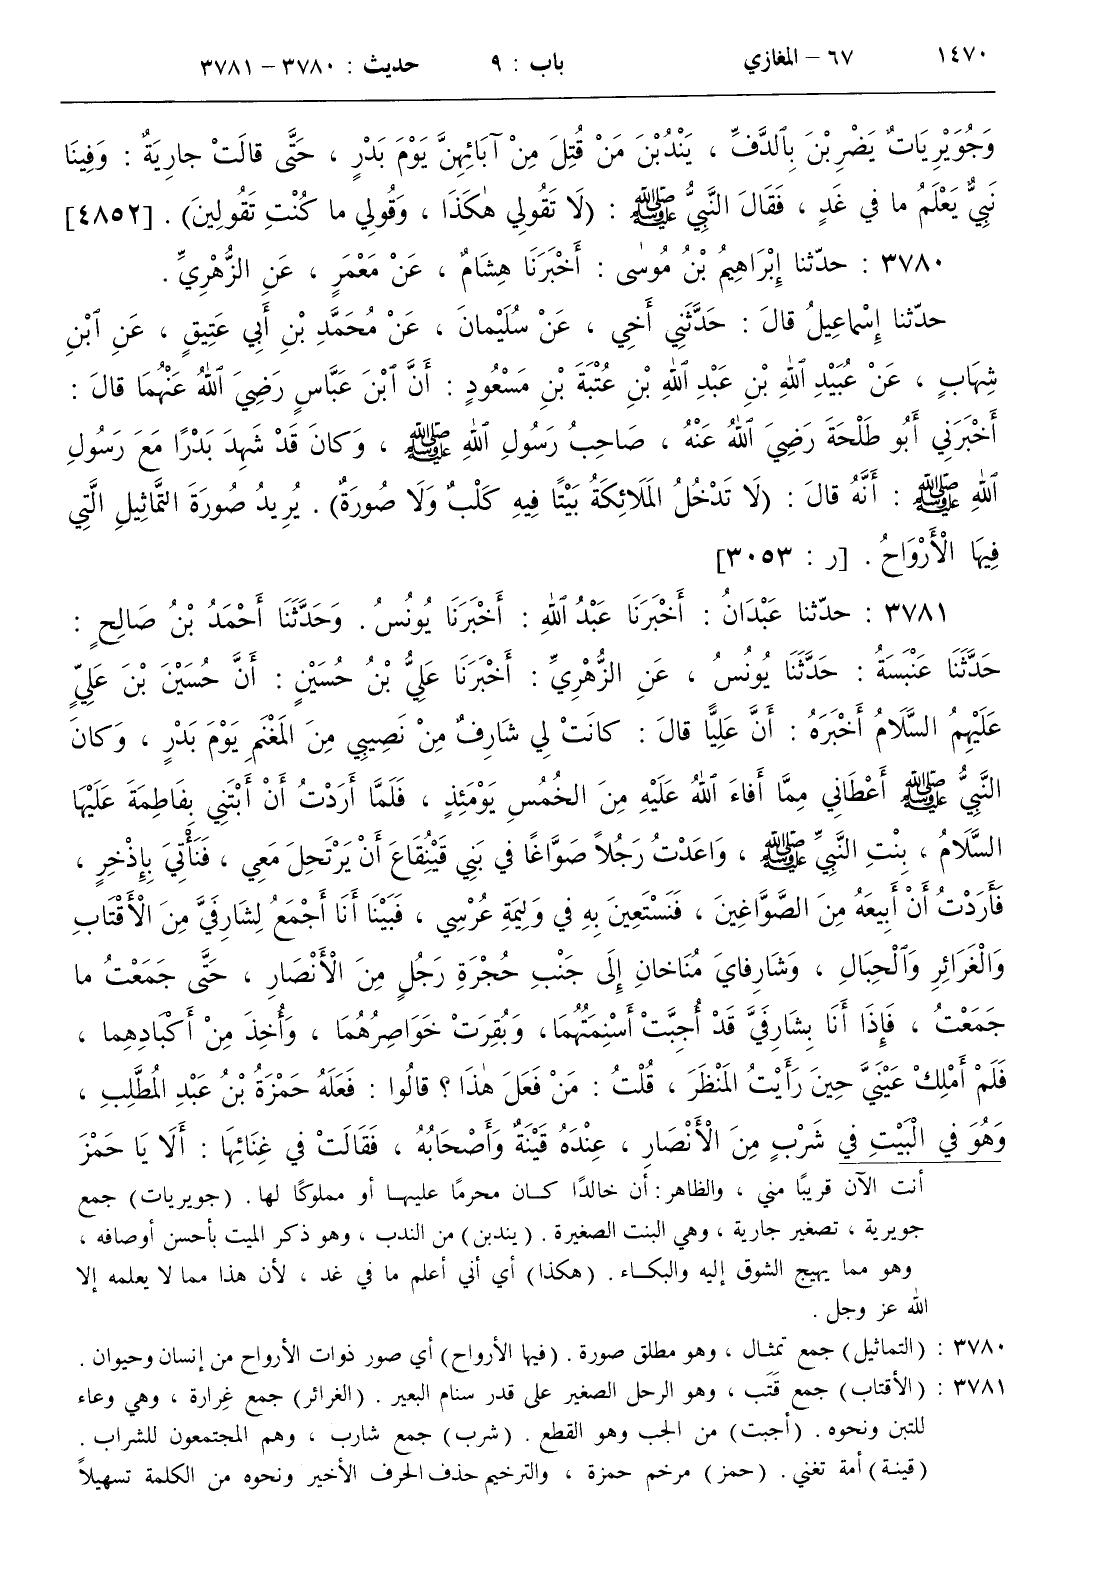 ١٤٧٠ ٦٧ – المغازي باب : ٩ حديث : ٣٧٨٠ – ٣٧٨١
وَجُوَيْرِيَاتٌ يَضْرِبْنَ بِٱلدَّفِّ ، يَنْدُبْنَ مَنْ قُتِلَ مِنْ آبَائِهِنَّ يَوْمَ بَدْرٍ ، حَتَّى قالَتْ جارِيَةٌ : وَفِينَا
نَبِيٌّ يَعْلَمُ ما في غَدٍ ، فَقَالَ النَّبِيُّ ﷺ : (لَا تَقُولي هٰكَذَا ، وَقُولي ما كُنْتِ تَقُولِينَ) . [٤٨٥٢]
٣٧٨٠ : حدّثنا إِبْرَاهِيمُ بْنُ مُوسٰى : أَخْبَرَنَا هِشَامٌ ، عَنْ مَعْمَرٍ ، عَنِ الزُّهْرِيِّ .
حدّثنا إِسْماعِيلُ قالَ : حَدَّثَنِي أَخِي ، عَنْ سُلَيْمانَ ، عَنْ مُحَمَّدِ بْنِ أَبِي عَتِيقٍ ، عَنِ ٱبْنِ
شِهَابٍ ، عَنْ عُبَيْدِ ٱللهِ بْنِ عَبْدِ ٱللهِ بْنِ عُتْبَةَ بْنِ مَسْعُودٍ : أَنَّ ٱبْنَ عَبَّاسٍ رَضِيَ ٱللهُ عَنْهُمَا قالَ :
أَخْبَرَنِي أَبُو طَلْحَةَ رَضِيَ ٱللهُ عَنْهُ ، صَاحِبُ رَسُولِ ٱللهِ ﷺ ، وَكانَ قَدْ شَهِدَ بَدْرًا مَعَ رَسُولِ
ٱللهِ ﷺ : أَنَّهُ قالَ : (لَا تَدْخُلُ المَلَائِكَةُ بَيْتًا فِيهِ كَلْبٌ وَلَا صُورَةٌ) . يُرِيدُ صُورَةَ التَّماثِيلِ الَّتِي
فِيهَا الْأَرْوَاحُ . [ر : ٣٠٥٣]
٣٧٨١ : حدّثنا عَبْدَانُ : أَخْبَرَنَا عَبْدُ ٱللهِ : أَخْبَرَنَا يُونُسُ . وَحَدَّثَنَا أَحْمَدُ بْنُ صَالِحٍ :
حَدَّثَنَا عَنْبَسَةُ : حَدَّثَنَا يُونُسُ ، عَنِ الزُّهْرِيِّ : أَخْبَرَنَا عَلِيُّ بْنُ حُسَيْنٍ : أَنَّ حُسَيْنَ بْنَ عَلِيٍّ
عَلَيْهِمِ السَّلَامُ أَخْبَرَهُ : أَنَّ عَلِيًّا قالَ : كانَتْ لِي شارِفٌ مِنْ نَصِيبِي مِنَ المَغْنَمِ يَوْمَ بَدْرٍ ، وَكانَ
النَّبِيُّ ﷺ أَعْطَانِي مِمَّا أَفاءَ ٱللهُ عَلَيْهِ مِنَ الخُمُسِ يَوْمَئِذٍ ، فَلَمَّا أَرَدْتُ أَنْ أَبْتَنِي بِفَاطِمَةَ عَلَيْهَا
السَّلَامُ ، بِنْتِ النَّبِيِّ ﷺ ، وَاعَدْتُ رَجُلاً صَوَّاغًا في بَنِي قَيْنُقَاعَ أَنْ يَرْتَحِلَ مَعِي ، فَنَأْتِيَ بِإِذْخِرٍ ،
فَأَرَدْتُ أَنْ أَبِيعَهُ مِنَ الصَّوَّاغِينَ ، فَنَسْتَعِينَ بِهِ في وَلِيمَةِ عُرْسِي ، فَبَيْنَا أَنَا أَجْمَعُ لِشَارِفَيَّ مِنَ الْأَقْتَابِ
وَالْغَرَائِرِ وَٱلْحِبَالِ ، وَشارِفايَ مُنَاخانِ إِلَى جَنْبِ حُجْرَةِ رَجُلٍ مِنَ الْأَنْصَارِ ، حَتَّى جَمَعْتُ ما
جَمَعْتُ ، فَإِذَا أَنَا بِشَارِفَيَّ قَدْ أُجِبَّتْ أَسْنِمَتُهُمَا، وَبُقِرَتْ خَوَاصِرُهُمَا ، وَأُخِذَ مِنْ أَكْبَادِهِما ،
فَلَمْ أَمْلِكْ عَيْنَيَّ حِينَ رَأَيْتُ المَنْظَرَ ، قُلْتُ : مَنْ فَعَلَ هٰذَا ؟ قالُوا : فَعَلَهُ حَمْزَةُ بْنُ عَبْدِ المُطَّلِبِ ،
وَهُوَ في الْبَيْتِ في شَرْبٍ مِنَ الْأَنْصَارِ ، عِنْدَهُ قَيْنَةٌ وَأَصْحَابُهُ ، فَقَالَتْ في غِنَائِهَا : أَلَا يَا حَمْزَ
أنت الآن قريبًا مني ، والظاهر : أن خالدًا كان محرمًا عليها أو مملوكًا لها . (جويريات) جمع
جويرية ، تصغير جارية ، وهي البنت الصغيرة . (يندبن) من الندب ، وهو ذكر الميت بأحسن أوصافه ،
وهو مما يهيج الشوق إليه والبكاء . (هكذا) أي أني أعلم ما في غد ، لأن هذا مما لا يعلمه إلا
الله عز وجل .
٣٧٨٠ : (التماثيل) جمع تمثال ، وهو مطلق صورة . (فيها الأرواح) أي صور ذوات الأرواح من إنسان وحيوان .
٣٧٨١ : (الأقتاب) جمع قَتَب ، وهو الرحل الصغير على قدر سنام البعير . (الغرائر) جمع غِرارة ، وهي وعاء
للتبن ونحوه . (أجبت) من الجب وهو القطع . (شرب) جمع شارب ، وهم المجتمعون للشراب .
(قينة) أمة تغني . (حمز) مرخم حمزة ، والترخيم حذف الحرف الأخير ونحوه من الكلمة تسهيلاً